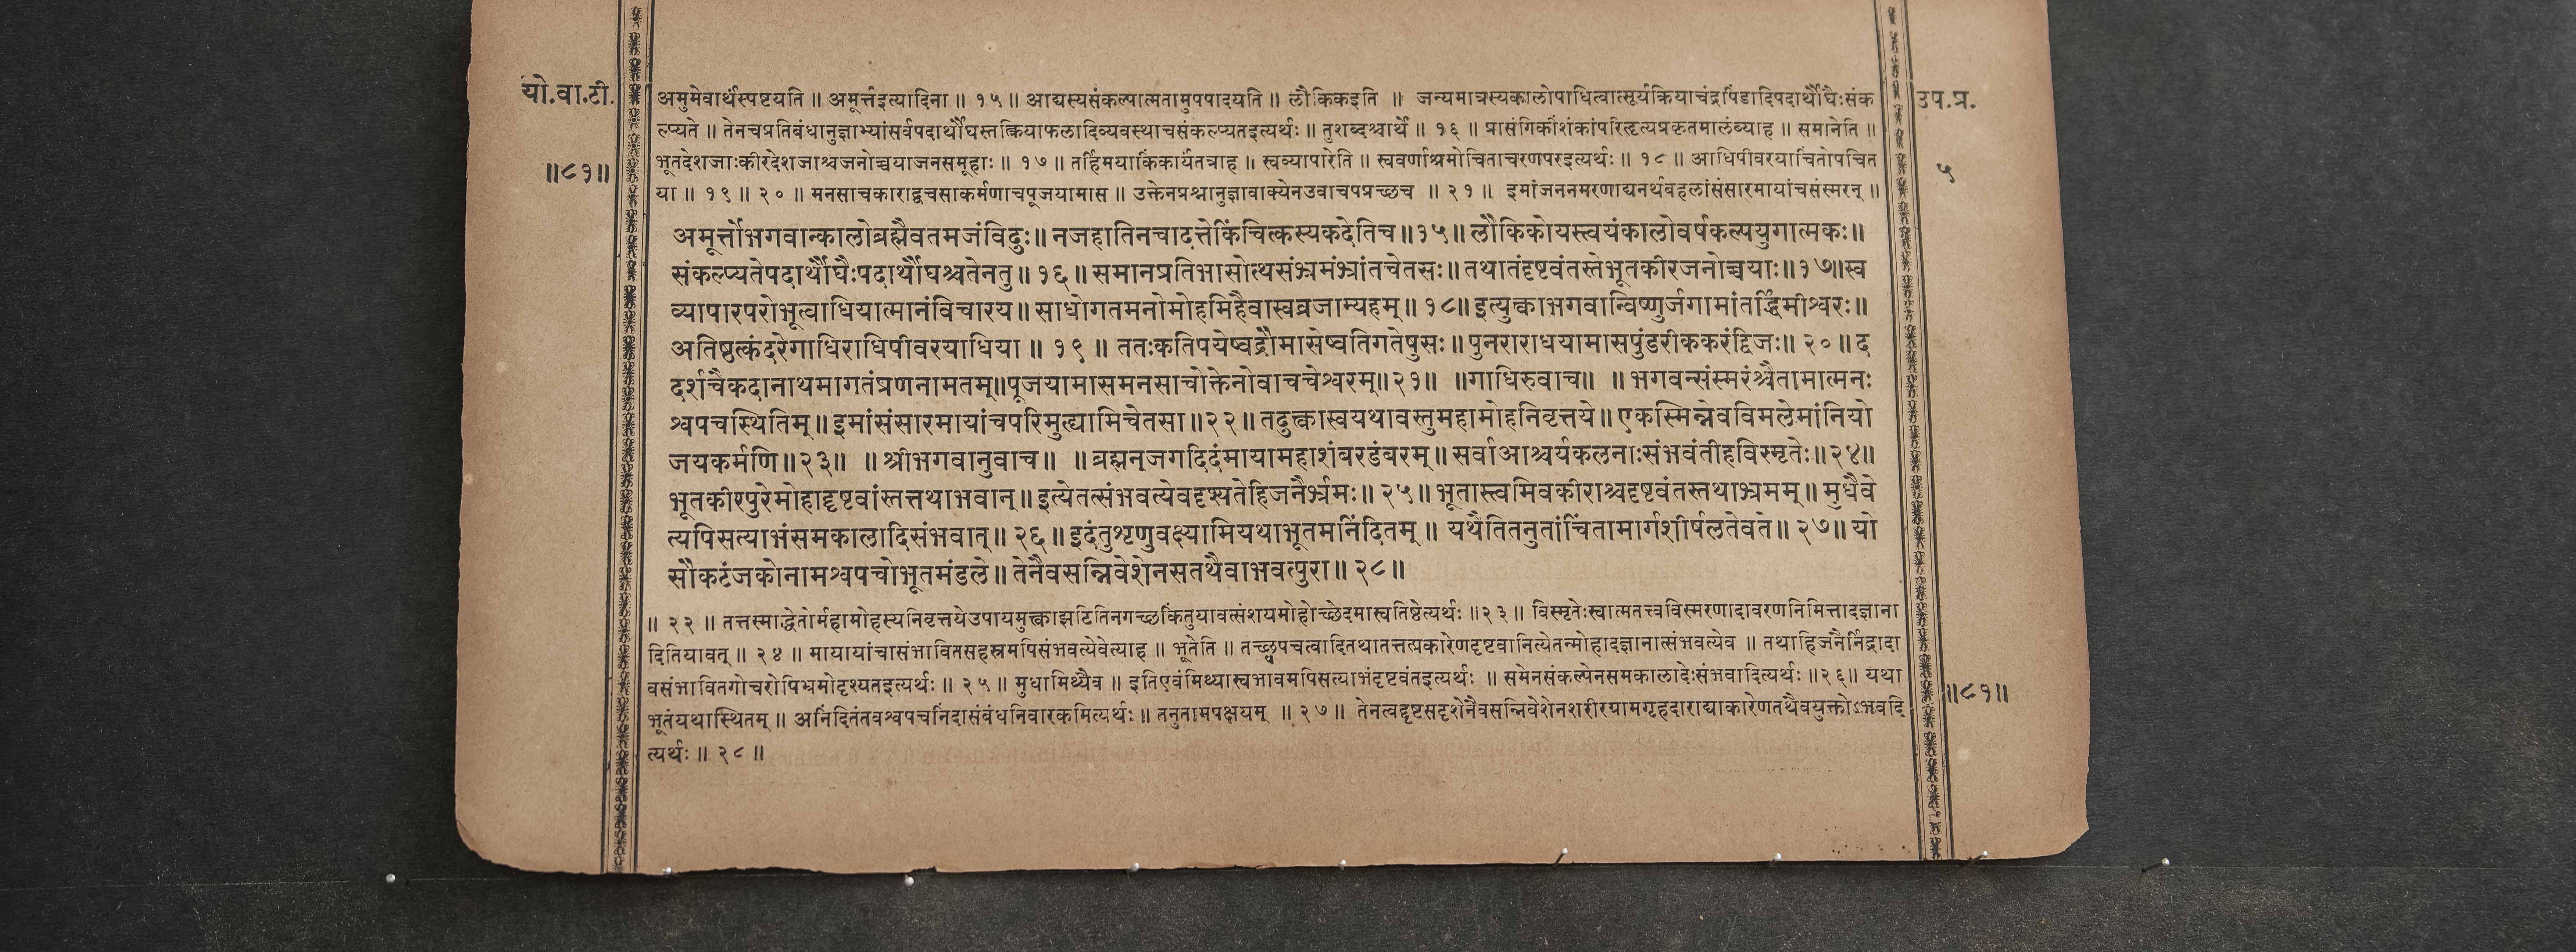 यो.वा.टी.
॥८१॥
अमुमेवार्थंस्पष्टयति ॥ अमूर्त्तइत्यादिना ॥ १५ ॥ आद्यस्यसंकल्पात्मतामुपपादयति ॥ लौकिकइति ॥ जन्यमात्रस्यकालोपाधित्वात्सूर्यक्रियाचंद्रपिंडादिपदार्थौघैःसंक
ल्प्यते ॥ तेनचप्रतिबंधानुज्ञाभ्यांसर्वपदार्थौघस्तत्क्रियाफलादिव्यवस्थाचसंकल्प्यतइत्यर्थः ॥ तुशब्दश्चार्थे ॥ १६ ॥ प्रासंगिकींशंकांपरिहृत्यप्रकृतमालंब्याह ॥ समानेति ॥
भूतदेशजाःकीरदेशजाश्चजनोच्चयाजनसमूहाः ॥ १७ ॥ तर्हिमयाकिंकार्यंतत्राह ॥ स्वव्यापारेति ॥ स्ववर्णाश्रमोचिताचरणपरइत्यर्थः ॥ १८ ॥ आधिपीवरयाचिंतोपचित
या ॥ १९ ॥ २० ॥ मनसाचकाराद्वचसाकर्मणाचपूजयामास ॥ उक्तेनप्रश्नानुज्ञावाक्येनउवाचपप्रच्छच ॥ २१ ॥ इमांजननमरणाद्यनर्थबहलांसंसारमायांचसंस्मरन् ॥
अमूर्त्तोभगवान्कालोब्रह्मैवतमजंविदुः॥ नजहातिनचादत्तेकिंचित्कस्यकदेतिच॥१५॥ लौकिकोयस्त्वयंकालोवर्षकल्पयुगात्मकः॥
संकल्प्यतेपदार्थौघैःपदार्थौघश्चतेनतु॥ १६॥ समानप्रतिभासोत्थसंभ्रमंभ्रांतचेतसः॥ तथातंदृष्टवंतस्तेभूतकीरजनोच्चयाः॥१७॥स्व
व्यापारपरोभूत्वाधियात्मानंविचारय॥ साधोगतमनोमोहमिहैवास्वव्रजाम्यहम्॥ १८॥ इत्युक्त्वाभगवान्विष्णुर्जगामांतर्द्धिमीश्वरः॥
अतिष्ठत्कंदरेगाधिराधिपीवरयाधिया॥ १९ ॥ ततःकतिपयेष्वद्रौमासेष्वतिगतेषुसः॥ पुनराराधयामासपुंडरीककरंद्विजः॥ २०॥ द
दर्शचैकदानाथमागतंप्रणनामतम्॥पूजयामासमनसाचोक्तेनोवाचचेश्वरम्॥२१॥ ॥गाधिरुवाच॥ ॥ भगवन्संस्मरंश्चैतामात्मनः
श्वपचस्थितिम्॥ इमांसंसारमायांचपरिमुह्यामिचेतसा॥२२॥ तदुक्त्वास्वयथावस्तुमहामोहनिवृत्तये॥ एकस्मिन्नेवविमलेमांनियो
जयकर्मणि॥२३॥ ॥ श्रीभगवानुवाच॥ ॥ब्रह्मन्जगदिदंमायामहाशंबरडंबरम्॥ सर्वाआश्चर्यकलनाःसंभवंतीहविस्मृतेः॥२४॥
भूतकीरपुरेमोहाद्दृष्टवांस्तत्तथाभवान्॥ इत्येतत्संभवत्येवदृश्यतेहिजनैर्भ्रमः॥ २५॥ भूतास्त्वमिवकीराश्चदृष्टवंतस्तथाभ्रमम्॥ मुधैवे
त्यपिसत्याभंसमकालादिसंभवात्॥ २६॥ इदंतुशृणुवक्ष्यामियथाभूतमनिंदितम्॥ यथैतितनुतांचिंतामार्गशीर्षलतेवते॥ २७॥ यो
सौकटंजकोनामश्वपचोभूतमंडले॥ तेनैवसन्निवेशेनसतथैवाभवत्पुरा॥ २८॥
॥ २२ ॥ तत्तस्माद्धेतोर्महामोहस्यनिवृत्तयेउपायमुक्त्वाझटितिनगच्छकिंतुयावत्संशयमोहोच्छेदमास्वतिष्ठेत्यर्थः ॥२३॥ विस्मृतेःस्वात्मतत्त्वविस्मरणादावरणनिमित्तादज्ञाना
दितियावत् ॥ २४ ॥ मायायांचासंभावितसहस्रमपिसंभवत्येवेत्याह ॥ भूतेति ॥ तच्छ्वपचत्वादितथातत्तत्प्रकारेणदृष्टवानित्येतन्मोहादज्ञानात्संभवत्येव ॥ तथाहिजनैर्निद्रादा
वसंभावितगोचरोपिभ्रमोदृश्यतइत्यर्थः ॥ २५ ॥ मुधामिथ्यैव ॥ इतिएवंमिथ्यास्वभावमपिसत्याभंदृष्टवंतइत्यर्थः ॥ समेनसंकल्पेनसमकालादेःसंभवादित्यर्थः ॥२६॥ यथा
भूतंयथास्थितम् ॥ अनिंदितंतवश्वपचनिंदासंबंधनिवारकमित्यर्थः ॥ तनुतामपक्षयम् ॥ २७ ॥ तेनत्वद्दृष्टसदृशेनैवसन्निवेशेनशरीरयामगृहदाराद्याकारेणतथैवयुक्तोऽभवदि
त्यर्थः ॥ २८ ॥
उप.प्र.
५
॥८१॥